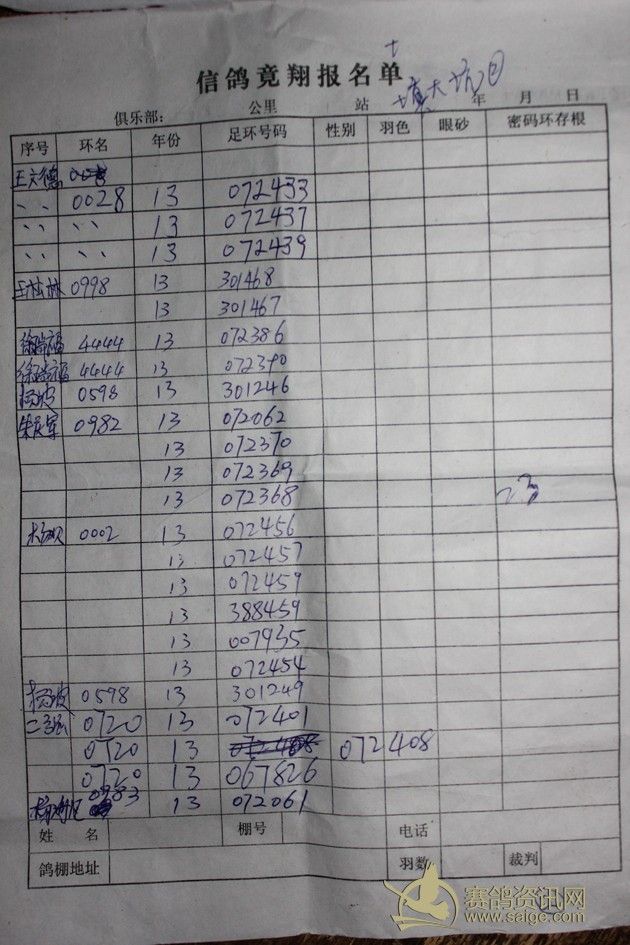 信鸽竟翔报名单
俱乐部: 公里 站 年 月 日
序号 环名 年份 足环号码 性别 羽色 眼砂 密码环存根
0028 13 072433
13 072437
13 072439
0998 13 301468
13 301467
4444 13 072386
4444 13 072390
0598 13 301246
0982 13 072062
13 072370
13 072369
13 072368
23
0002 13 072456
13 072457
13 072459
13 388459
13 007935
13 072454
0598 13 301249
0720 13 072401
0720 13 072408
0720 13 067826
0983 13 072061
姓 名 棚号 电话
鸽棚地址 羽数 裁判
赛鸽资讯网
www.saige.com